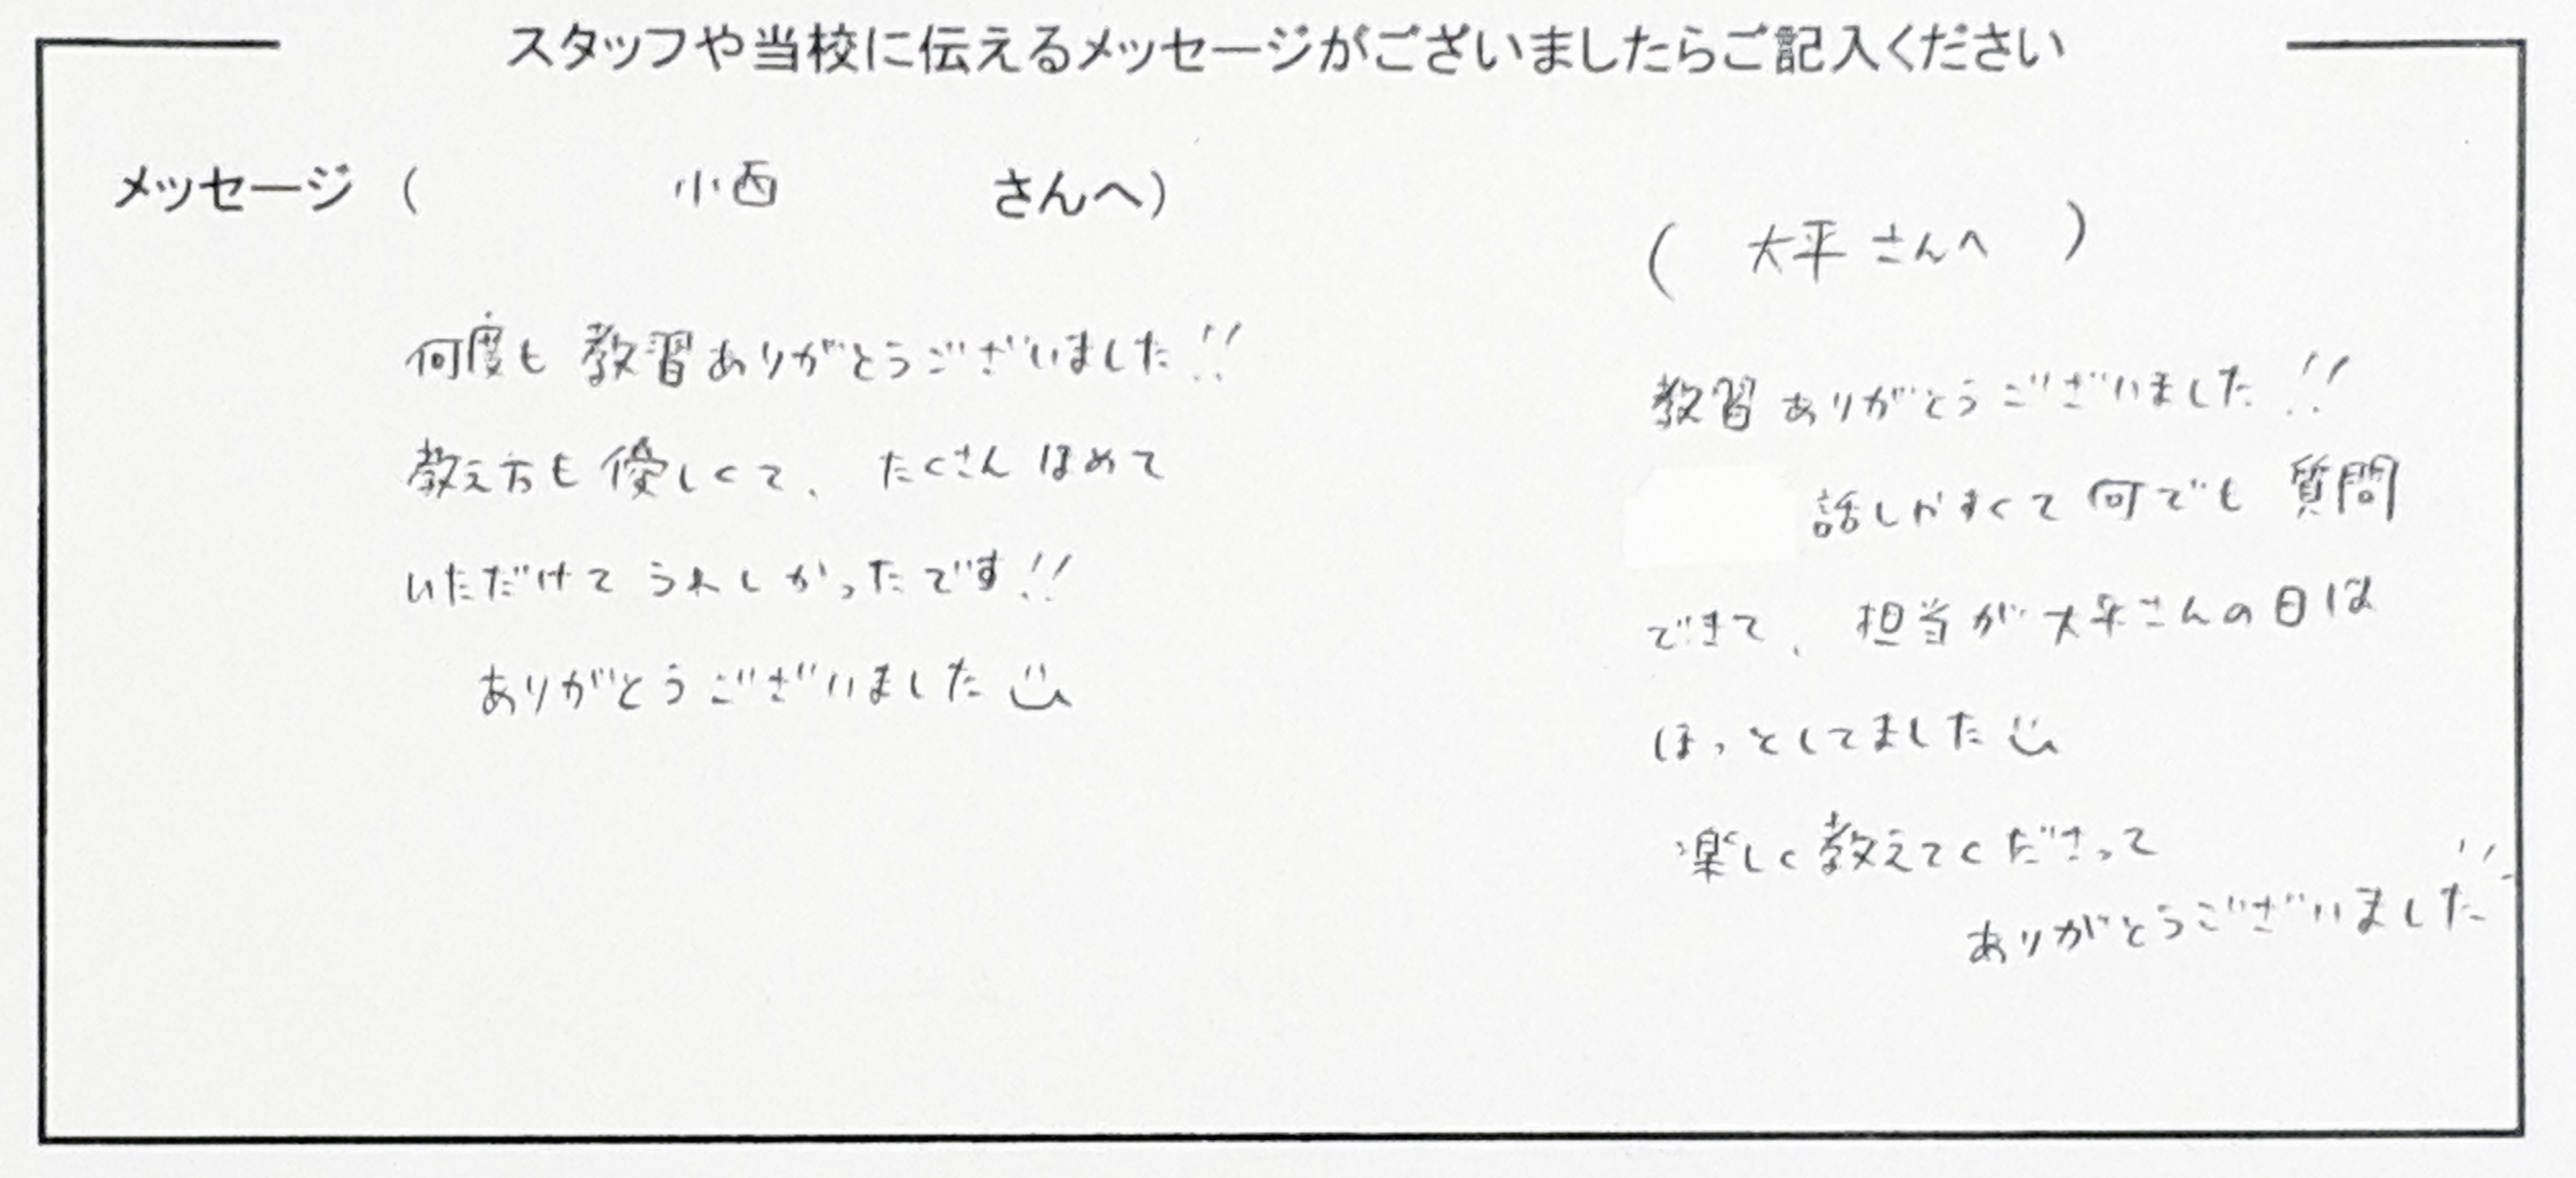 スタッフや当校に伝えるメッセージがございましたらご記入ください
メッセージ ( 小西 さんへ)
何度も教習ありがとうございました!!
教え方も優しくて、たくさんほめて
いただけてうれしかったです!!
ありがとうございました
( 大平さんへ )
教習ありがとうございました!!
話しやすくて何でも質問
できて、担当が大平さんの日は
ほっとしてました
楽しく教えてくださって
ありがとうございました!!